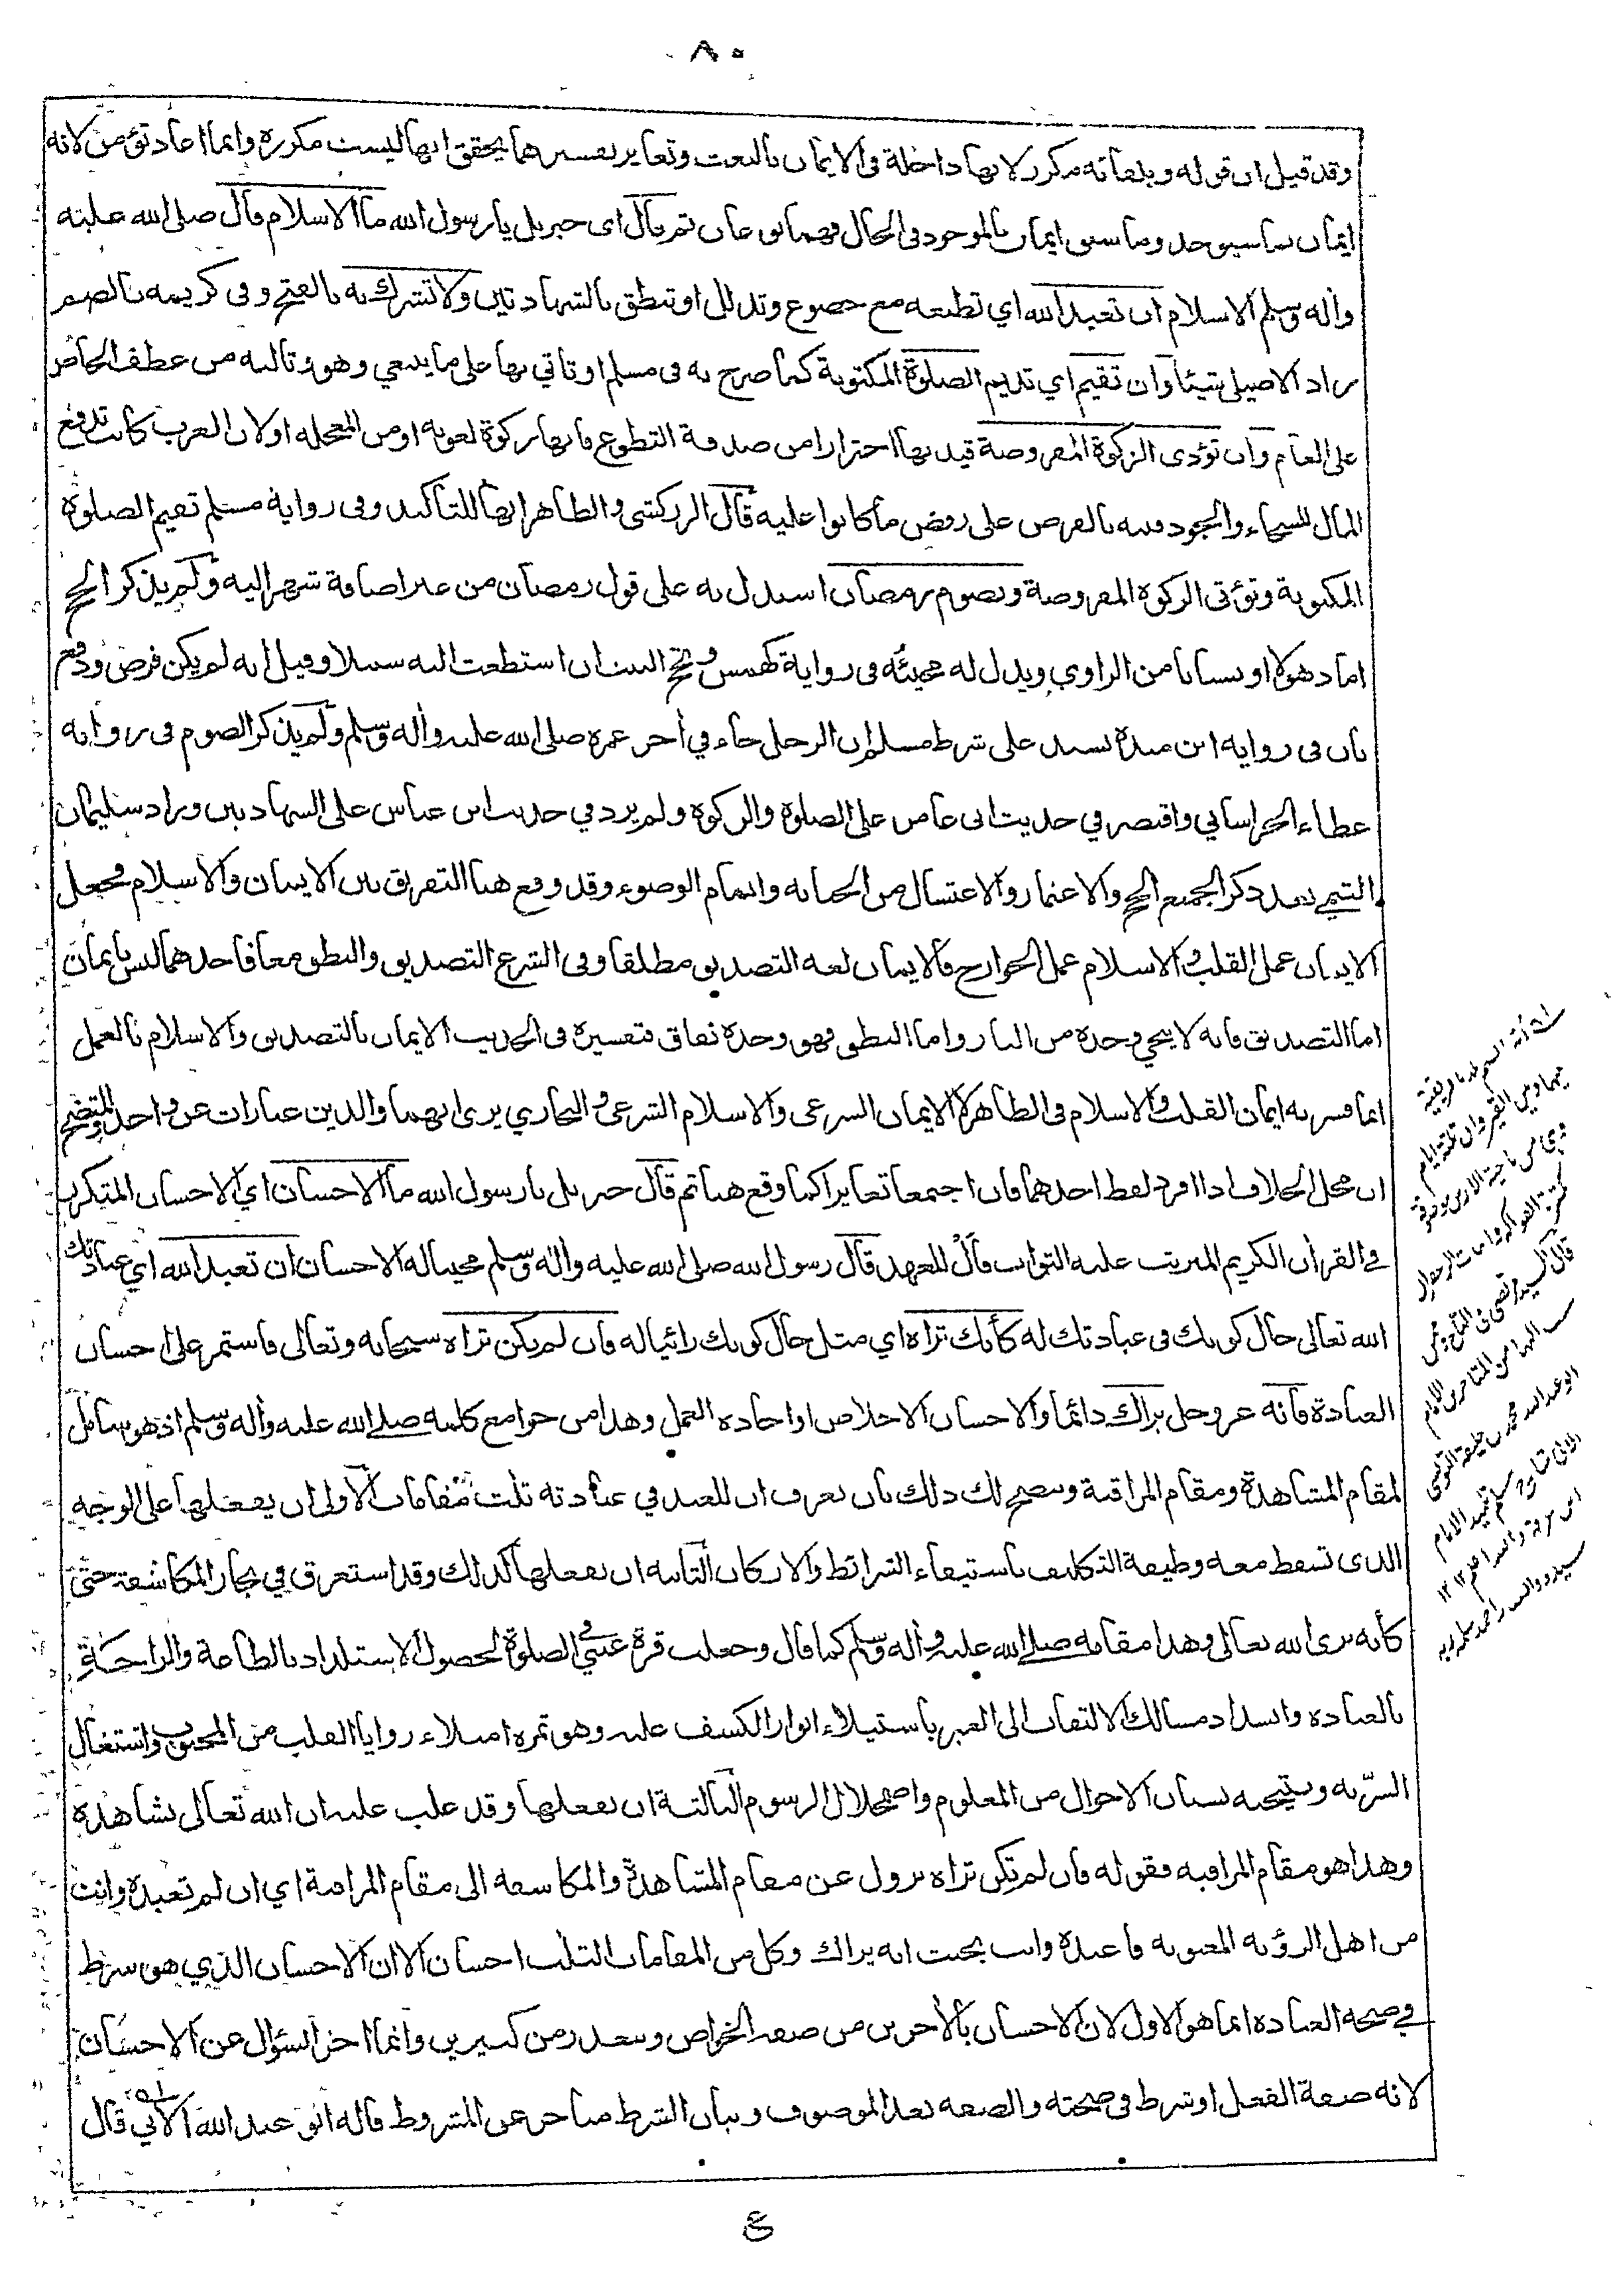 ٨٠
وقد قيل ان قوله وبلقائه مكرر لانها داخلة فى الايمان بالبعث وتغاير تفسيرهما يحقق انها ليست مكررة وانما اعاد تؤمن لانه
ايمان بما سيوجد وما سبق ايمان بالموجود فى الحال فهما نوعان ثم قال اى جبريل يارسول الله ما الاسلام قال صلى الله عليه
وأله وسلم الاسلام ان تعبد الله اي تطيعه مع خضوع وتذلل او تنطق بالشهادتين ولا تشرك به بالفتح وفى كريمه بالضم
زاد الاصيلى شيئا وان تقيم اي تديم الصلوة المكتوبة كما صرح به فى مسلم او تاتي بها على ما ينبغي وهو وتاليه من عطف الخاص
على العام وان تؤدى الزكوة المفروضة قيد بها احترازا من صدقة التطوع فانها زكوة لغوية او من المعجله او لان العرب كانت تدفع
المال للسخاء والجود فنبه بالفرض على رفض ما كانوا عليه قال الزركشى والظاهر انها للتأكيد وفى رواية مسلم تقيم الصلوة
المكتوبة وتؤتى الزكوة المفروضة وتصوم رمضان استدل به على قول رمضان من غير اضافة شهر اليه ولم يذكر الحج
اما ذهولا او نسيانا من الراوي ويدل له مجيئه فى رواية كهمس وتحج البيت ان استطعت اليه سبيلا وقيل انه لم يكن فرض ودفع
بان فى رواية ابن مندة بسند على شرط مسلم ان الرجل جاء في أخر عمره صلى الله عليه وأله وسلم ولم يذكر الصوم فى رواية
عطاء الخراساني واقتصر في حديث ابى عامر على الصلوة والزكوة ولم يزد في حديث ابن عباس على الشهادتين وزاد سليمان
التيمي بعد ذكر الجميع الحج والاعتمار والاغتسال من الجنابه واتمام الوضوء وقد وقع هنا التفريق بين الايمان والاسلام فجعل
الايمان عمل القلب والاسلام عمل الجوارح فالايمان لغه التصديق مطلقا وفى الشرع التصديق والنطق معا فاحدهما ليس بايمان
اما التصديق فانه لا ينجي وحده من النار واما النطق فهو وحده نفاق فتفسيره فى الحديث الايمان بالتصديق والاسلام بالعمل
انما فسر به ايمان القلب والاسلام فى الظاهر لا الايمان الشرعى والاسلام الشرعى والبخاري يرى انهما والدين عبارات عن واحد والمتضح
ان محل الخلاف اذا افرد لفظ احدهما فان اجتمعا تغايرا كما وقع هنا ثم قال جبريل يا رسول الله ما الاحسان اي الاحسان المتكرر
في القرأن الكريم المترتب عليه الثواب فأل للعهد قال رسول الله صلى الله عليه واله وسلم مجيبا له الاحسان ان تعبد الله اي عبادتك
الله تعالى حال كونك فى عبادتك له كأنك تراه اي مثل حال كونك رائيا له فان لم يكن تراه سبحانه وتعالى فاستمر على احسان
العبادة فأنه عز وجل يراك دائما والاحسان الاخلاص او اجادة العمل وهذا من جوامع كلمه صلى الله عليه وأله وسلم اذ هو شامل
لمقام المشاهدة ومقام المراقبة ويتضح لك ذلك بان تعرف ان للعبد في عبادته ثلث مقامات الأولى ان يفعلها على الوجه
الذى تسقط معه وظيفة التكليف باستيفاء الشرائط والاركان الثانيه ان يفعلها كذلك وقد استغرق في بحار المكاشفة حتى
كأنه يرى الله تعالى وهذا مقامه صلى الله عليه وأله وسلم كما قال وجعلت قرة عيني في الصلوة لحصول الاستلذاذ بالطاعة والراحة
بالعبادة وانسداد مسالك الالتفات الى الغير باستيلاء انوار الكشف عليه وهو ثمرة امتلاء زوايا القلب من المحبوب واشتغال
السرّ به ونتيجته نسيان الاحوال من المعلوم واضمحلال الرسوم الثالثة ان يفعلها وقد غلب عليه ان الله تعالى يشاهده
وهذا هو مقام المراقبه فقوله فان لم تكن تراه نزول عن مقام المشاهدة والمكاشفه الى مقام المراقبة اي ان لم تعبده وانت
من اهل الرؤيه المعنويه فاعبده وانت بحيث انه يراك وكل من المقامات الثلث احسان الا ان الاحسان الذي هو شرط
في صحه العبادة انما هو الاول لان الاحسان بالأخرين من صفه الخواص ويتعذر من كثيرين وانما اخر السؤال عن الاحسان
لانه صفة الفعل او شرط فى صحته والصفه بعد الموصوف وبيان الشرط متأخر عن المشروط قاله ابو عبد الله الابي قال
وبين القيروان ثلثة ايام
وهي من ناحية الاربس
قال السيد مرتضى فى التاج
من المتاخرين الامام
ابو عبد الله محمد بن خليفة التونسى
الابى شارح مسلم تلميذ الامام
ابن عرفة